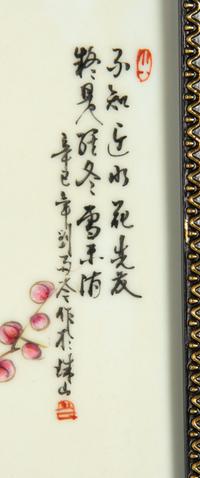 不知近水花先发
疑是经冬雪未消
辛巳年刘雨岑作於珠山